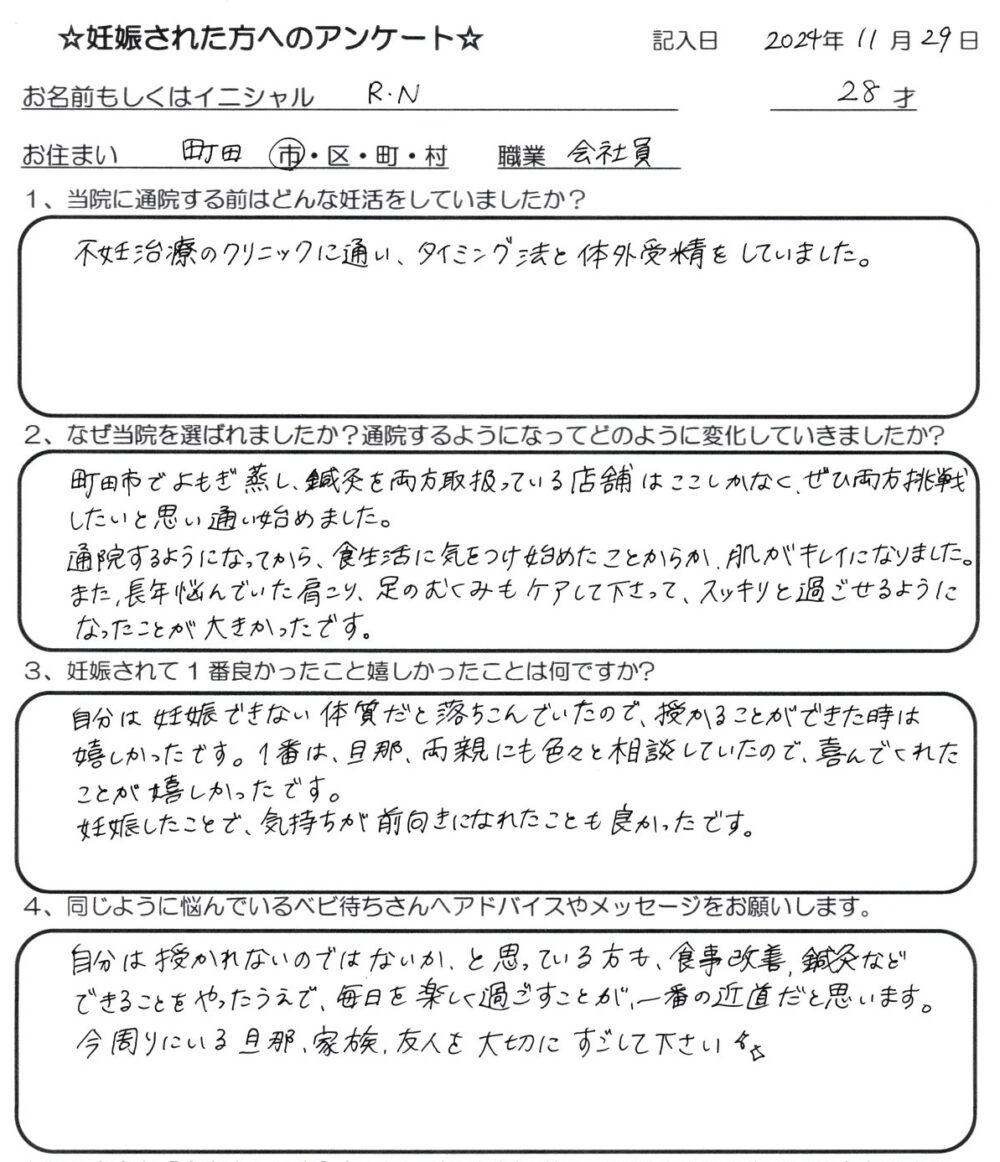 ☆妊娠された方へのアンケート☆ 記入日 2024年 11月 29日
お名前もしくはイニシャル R.N 28才
お住まい 町田 市・区・町・村 職業 会社員
1、当院に通院する前はどんな妊活をしていましたか？
不妊治療のクリニックに通い、タイミング法と体外受精をしていました。
2、なぜ当院を選ばれましたか？通院するようになってどのように変化していきましたか？
町田市でよもぎ蒸し、鍼灸を両方取扱っている店舗はここしかなく、ぜひ両方挑戦
したいと思い通い始めました。
通院するようになってから、食生活に気をつけ始めたことからか、肌がキレイになりました。
また、長年悩んでいた肩こり、足のむくみもケアして下さって、スッキリと過ごせるように
なったことが大きかったです。
3、妊娠されて1番良かったこと嬉しかったことは何ですか？
自分は妊娠できない体質だと落ちこんでいたので、授かることができた時は
嬉しかったです。1番は、旦那、両親にも色々と相談していたので、喜んでくれた
ことが嬉しかったです。
妊娠したことで、気持ちが前向きになれたことも良かったです。
4、同じように悩んでいるベビ待ちさんへアドバイスやメッセージをお願いします。
自分は授かれないのではないか、と思っている方も、食事改善、鍼灸など
できることをやったうえで、毎日を楽しく過ごすことが、一番の近道だと思います。
今周りにいる旦那、家族、友人を大切にすごして下さい☆